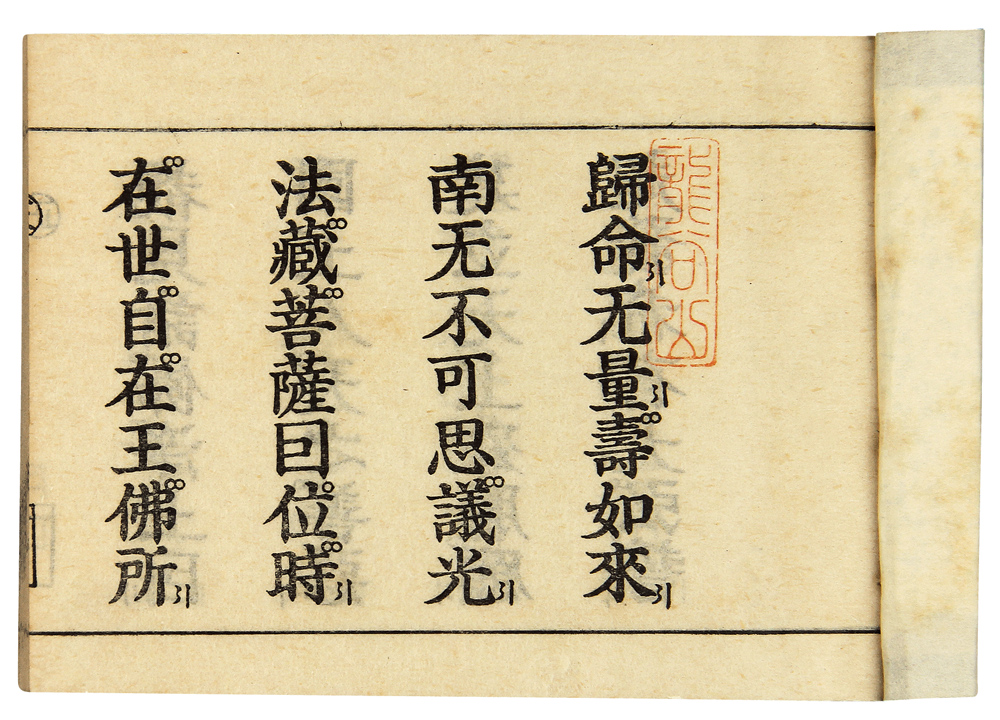 歸命无量壽如來
南无不可思議光
法藏菩薩囙位時
在世自在王佛所
龍谷山